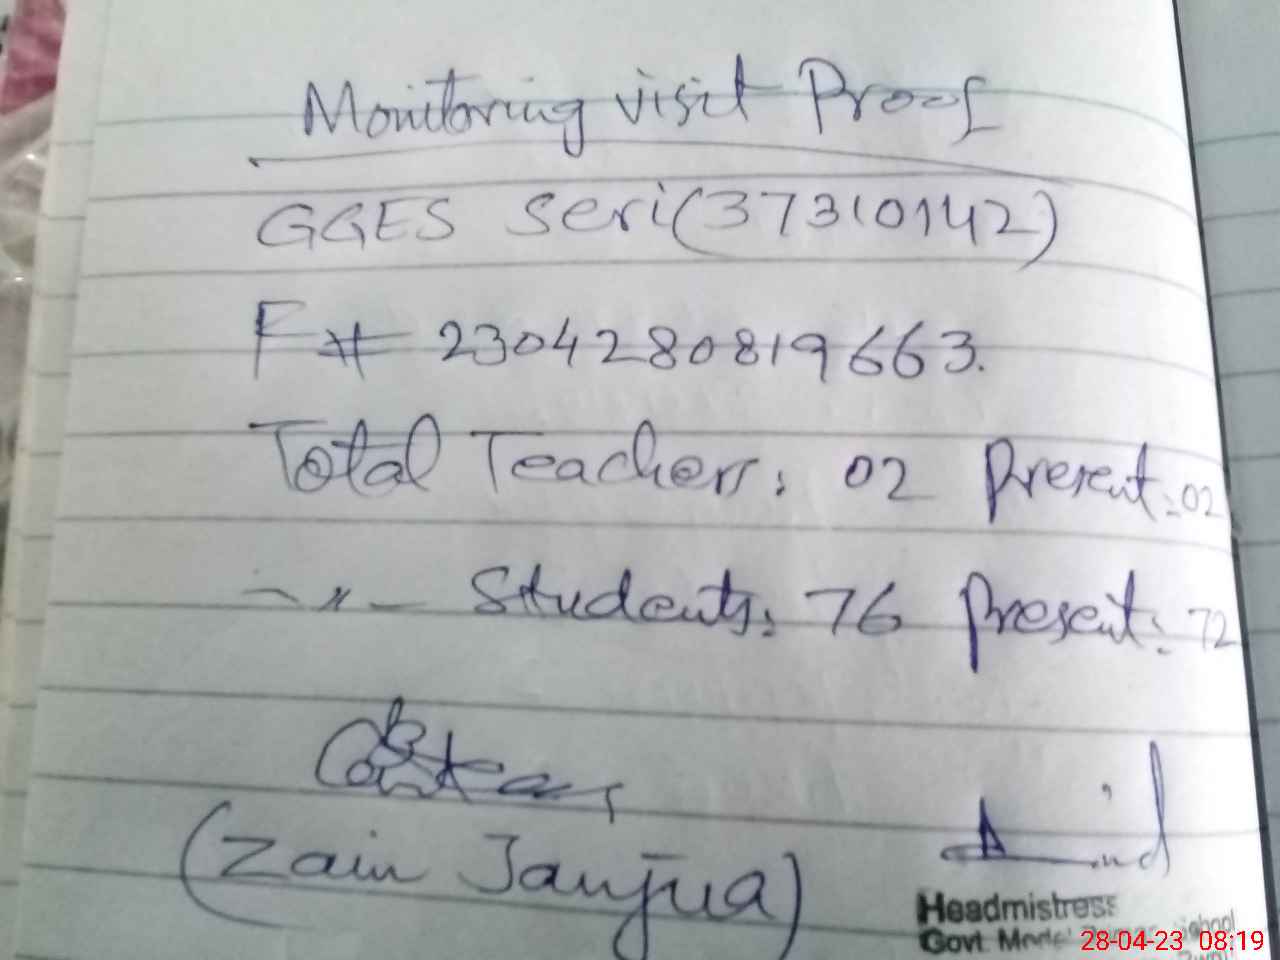 Monitoring visit Proof
GGES Seri (37310142)
F# 2304280819663.
Total Teachers: 02 Present: 02
-〃- Students: 76 Present: 72
(Zain Janjua)
Headmistress
Govt. Model School
28-04-23 08:19